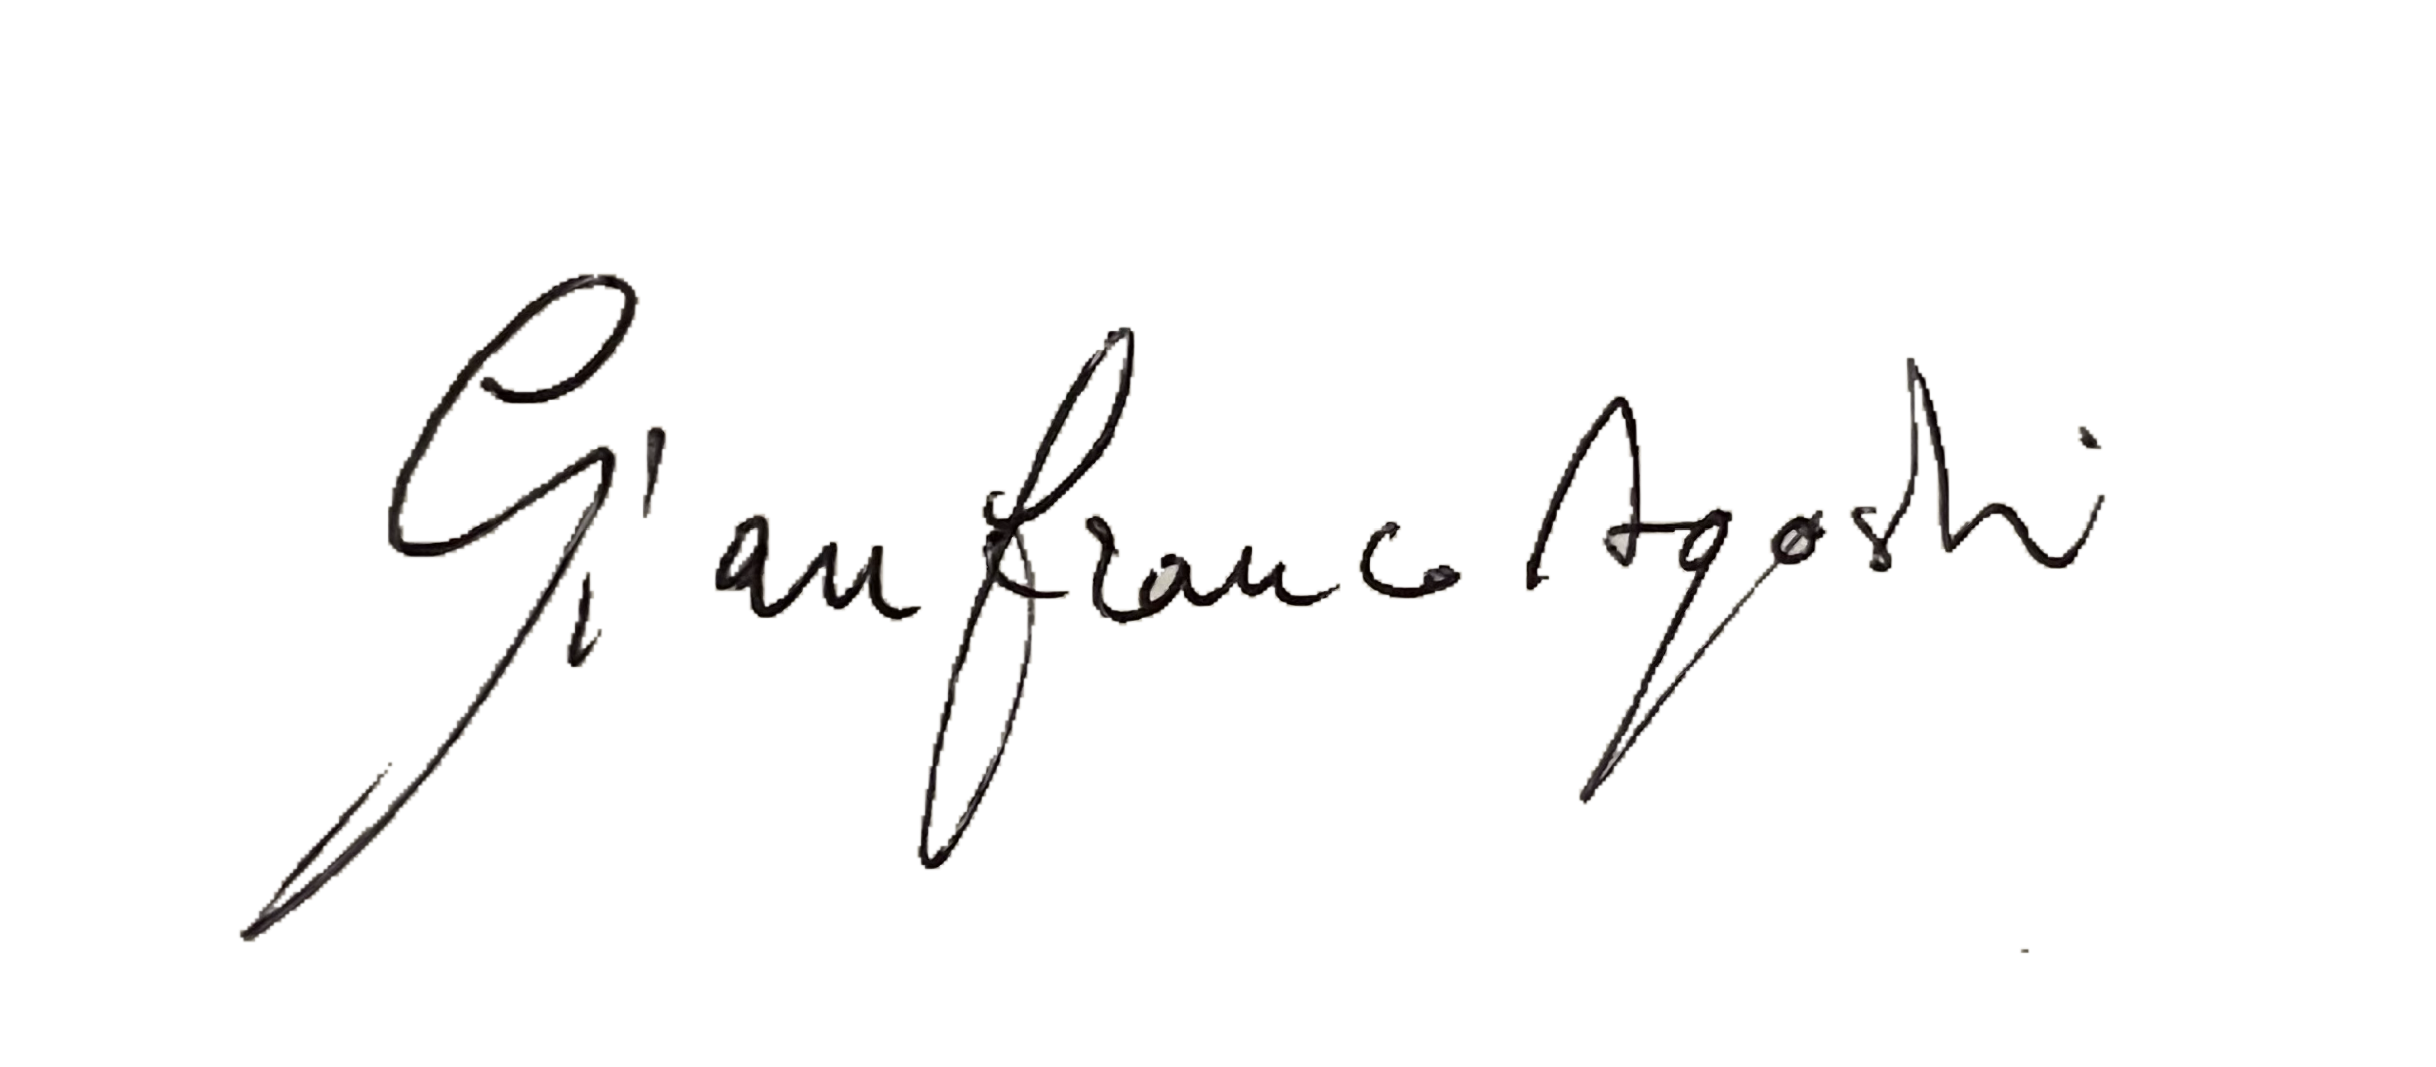 Gianfranco Agosti